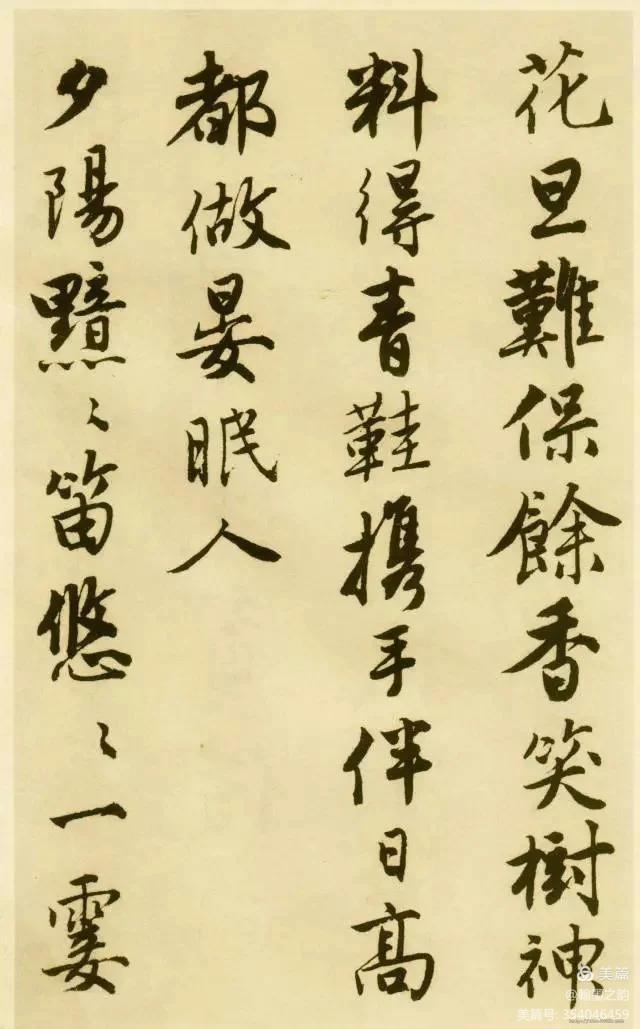 花旦難保餘香笑樹神
料得青鞋携手伴日高
都做晏眠人
夕陽黯〻笛悠〻一霎
美篇
@翰墨之韵
美篇号: 354046459